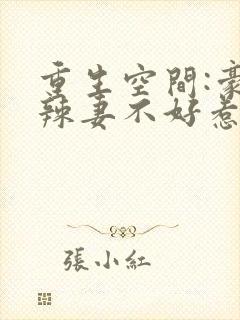 重生空間:豪
辣妻不好惹
張小紅